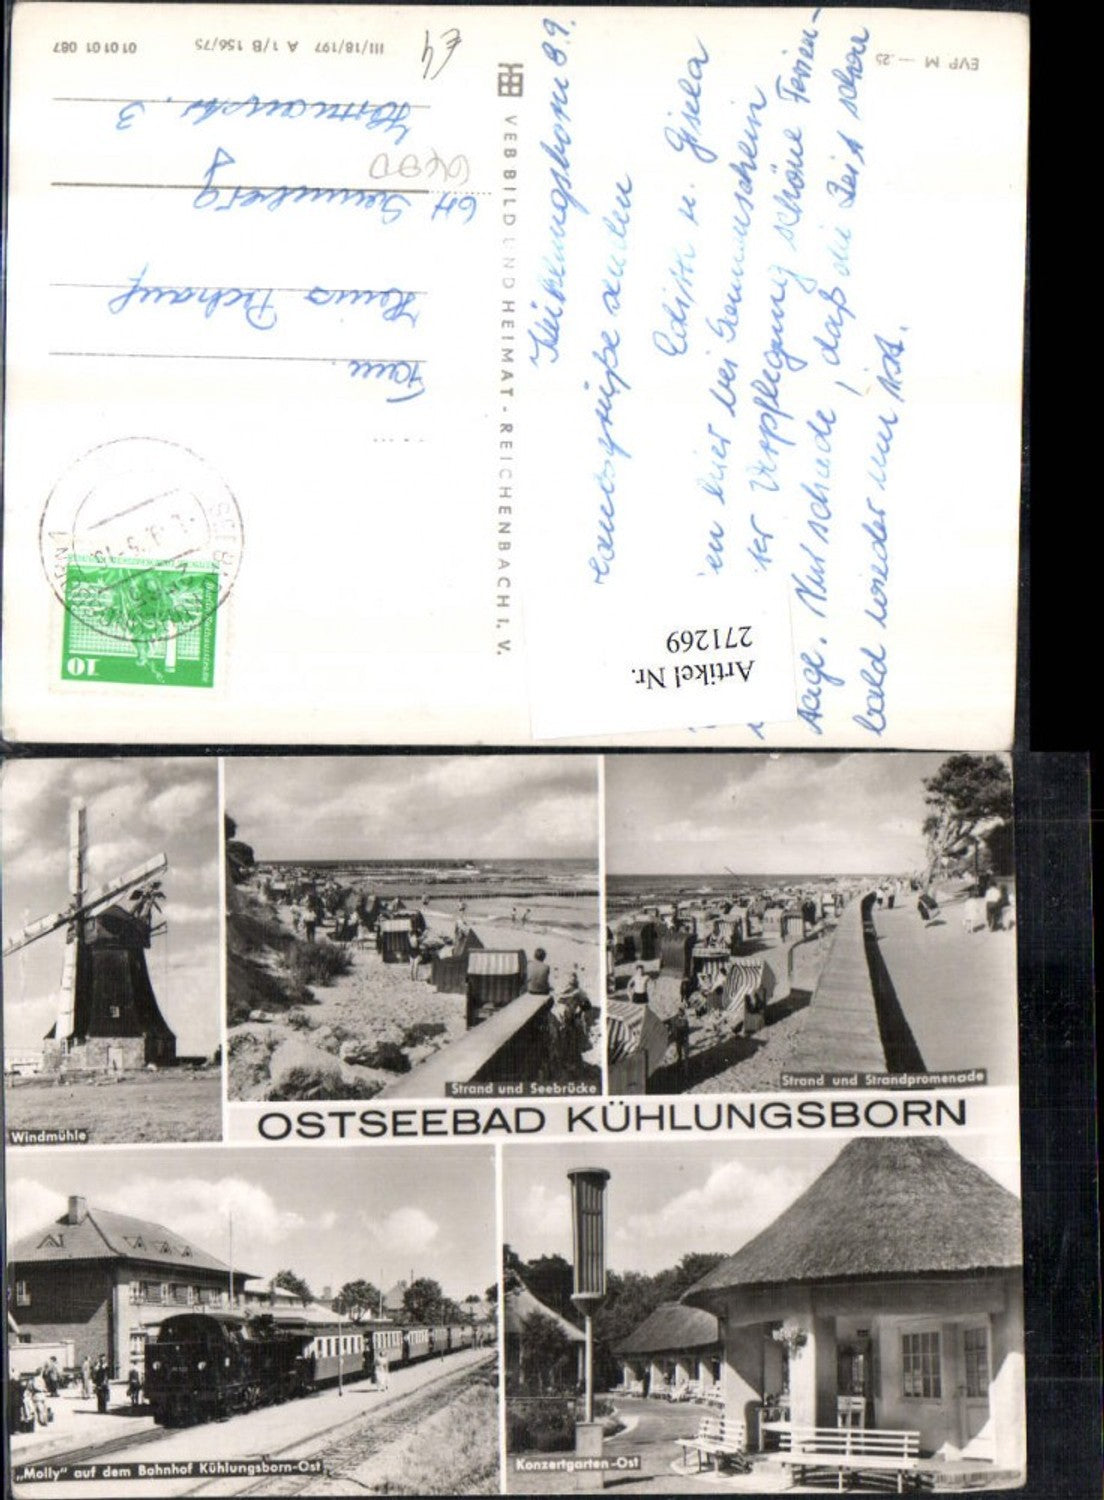 EVP M —.25
III/18/197 A 1/B 156/75 01 01 01 087
VEB BILD UND HEIMAT - REICHENBACH I. V.
Kühlungsborn 8.9.
Urlaubsgrüße senden
Edith u. Gisela
bei Sonnenschein
Verpflegung schöne Ferien-
tage. Nur schade, daß die Zeit schon
bald wieder um ist.
Fam.
Heinz
64 Sonneberg
3
6400
€4
10
Artikel Nr.
271269
Windmühle
Strand und Seebrücke
Strand und Strandpromenade
OSTSEEBAD KÜHLUNGSBORN
„Molly" auf dem Bahnhof Kühlungsborn-Ost
Konzertgarten-Ost